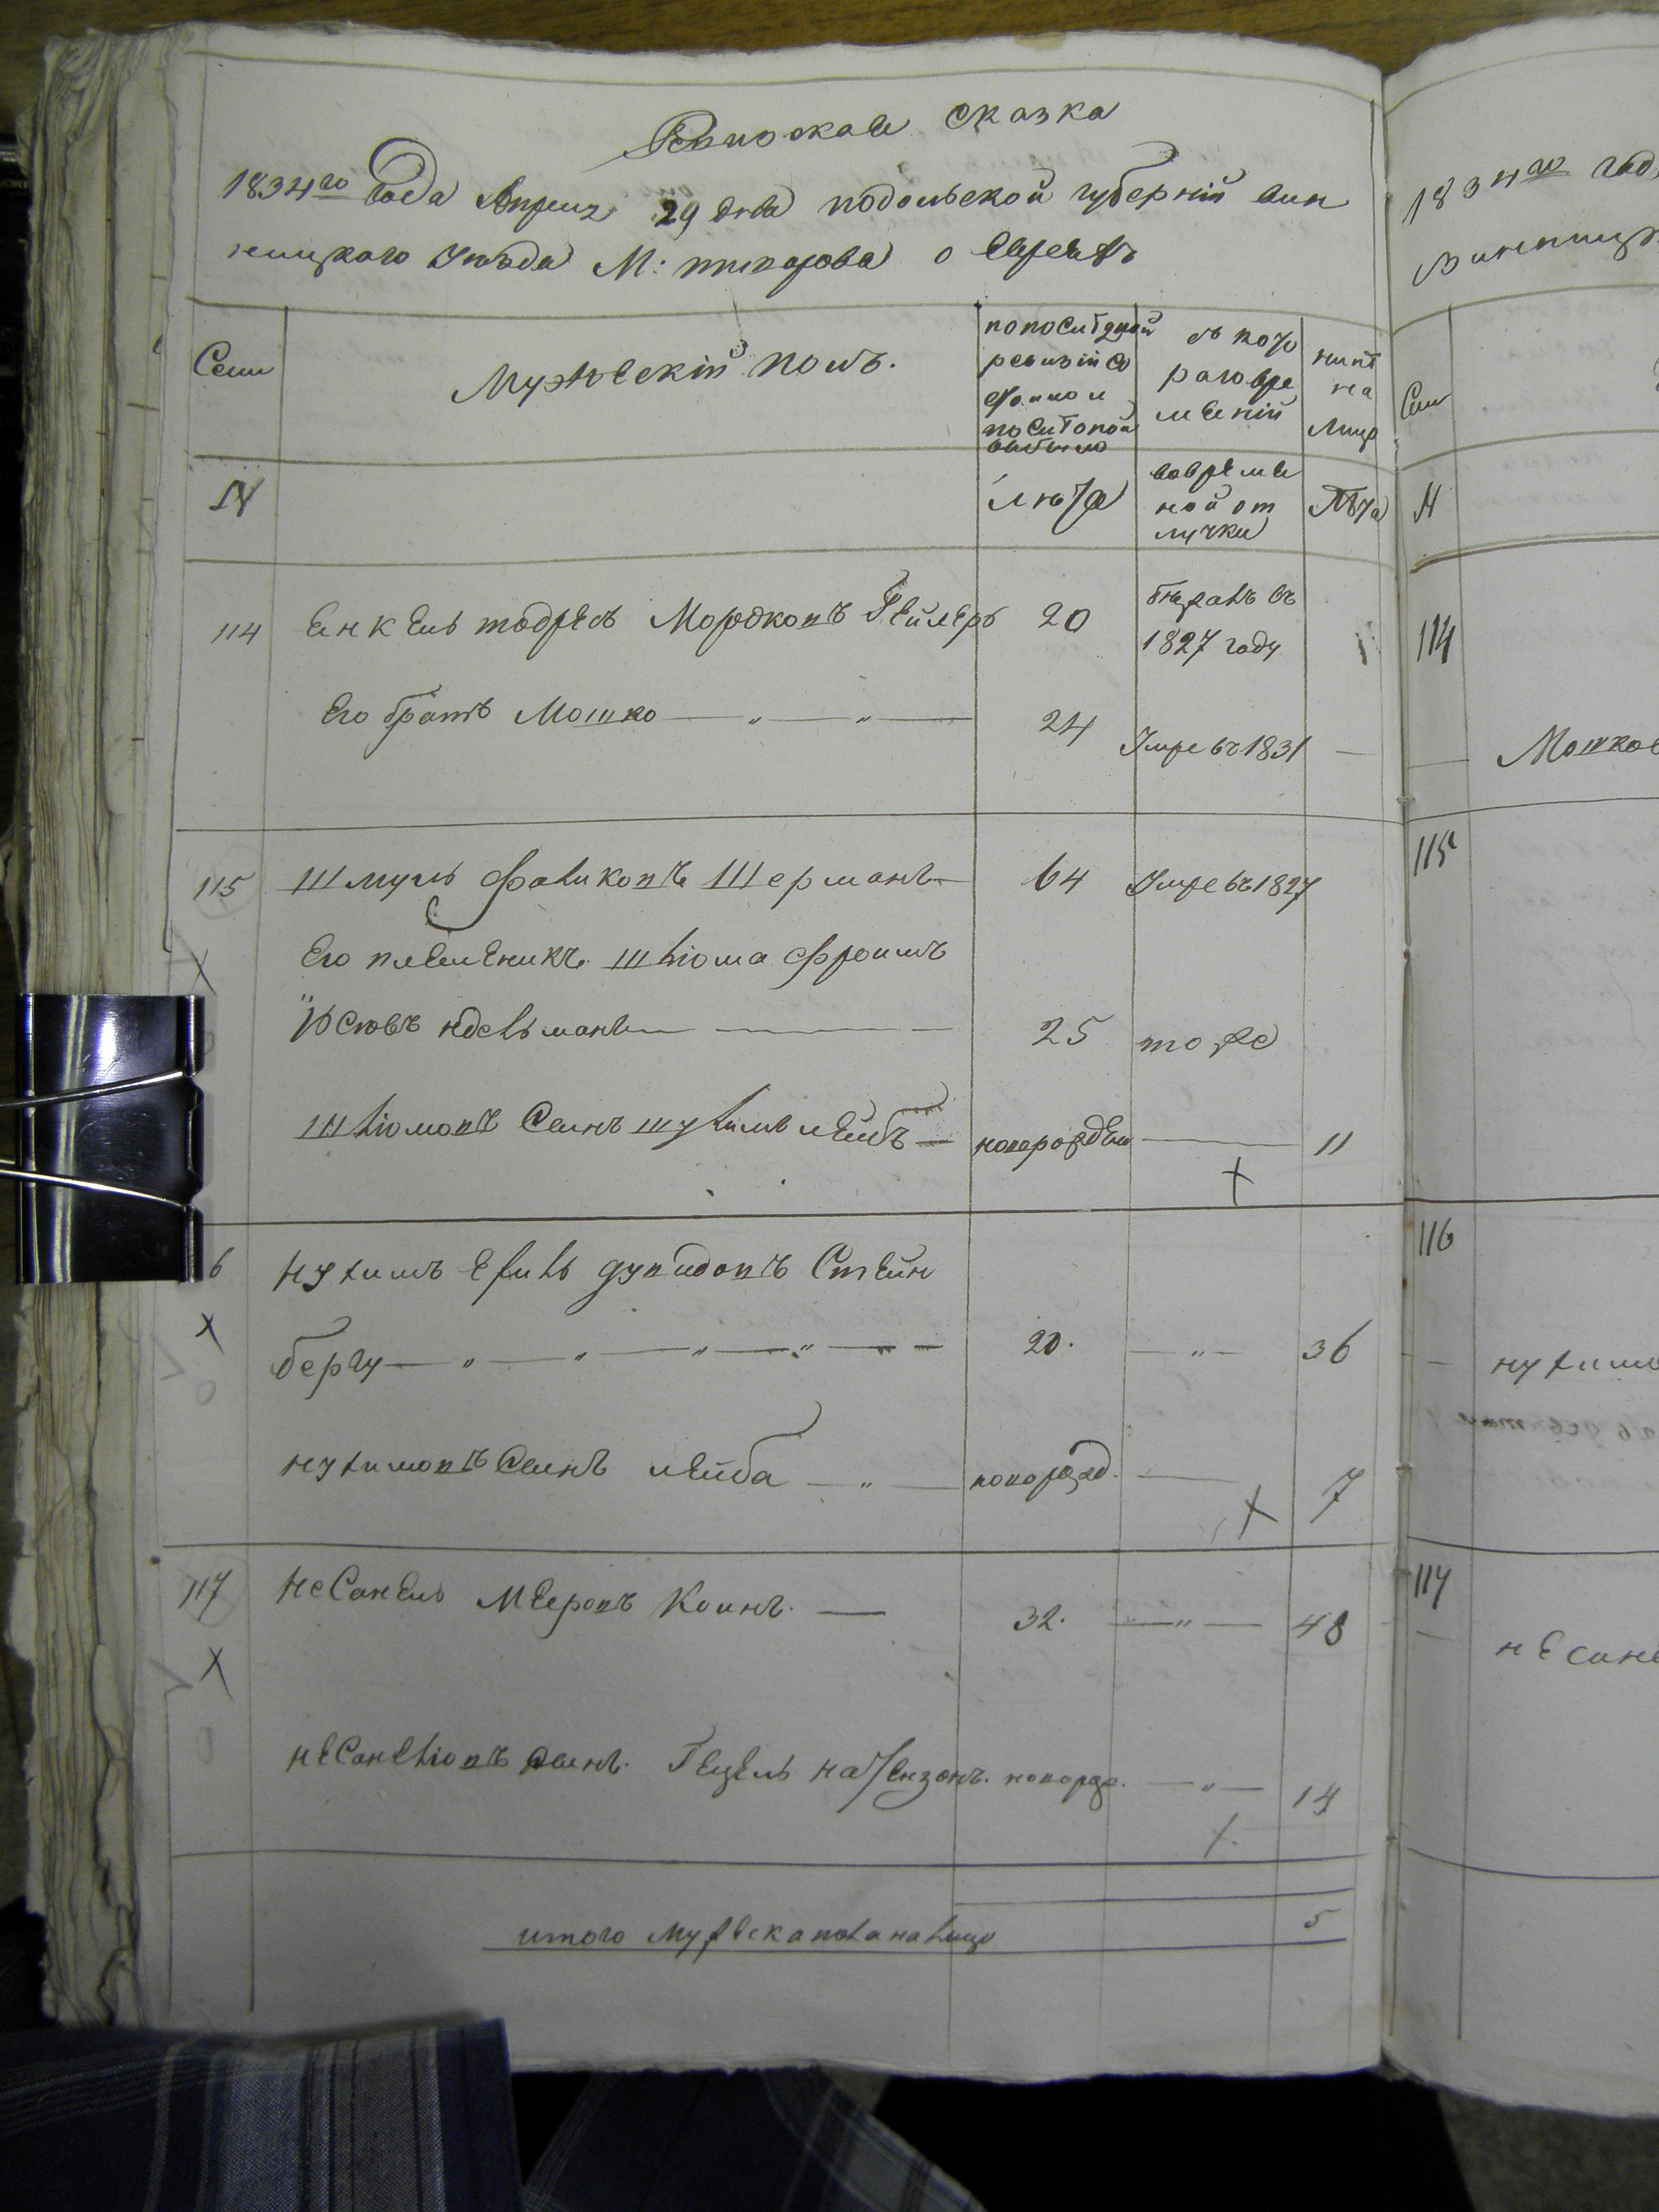 Ревизская сказка
1834го Года Апреля 29 дня подольской губерній вин
ницкаго Уезда М: пикова о Евреяхъ
Семи
Мужескій полъ.
по последней
ревизій со
стояло и
после того
выбыло
съ кото
раго вре
мений
ныне
на
лицо
N
лета
во време
ной от
лучки
лета
114 Енкель тодресъ Мордковъ Гейлеръ 20 бежалъ въ
1827 году
Его братъ Мошко — „ — „ — 24 Умре въ 1831 —
115 Шмуль Фаликовъ Шерманъ — 64 Умре въ 1827
Его племеникъ Шліома Фроимъ
Йосювъ иделманъ — — 25 тоже
Шліомовъ Сынъ шулимъ лейбъ — новорожден — 11
6 нухимъ Ефиль дувидовъ Стейн
бергъ — „ — „ — „ — „ — 20. — „ — 36
нухимовъ Сынъ лейба — „ — новорожд. — 7
117 неСанель Мееровъ Коинъ. — 32. — „ — 48
неСанеліовъ Сынъ. Гецель натензонъ. новорж. — „ — 14
итого мужеска пола на лицо 5
1834го год
винницк
Сем
N
114
Мошков
115
116
нухимо
117
несане